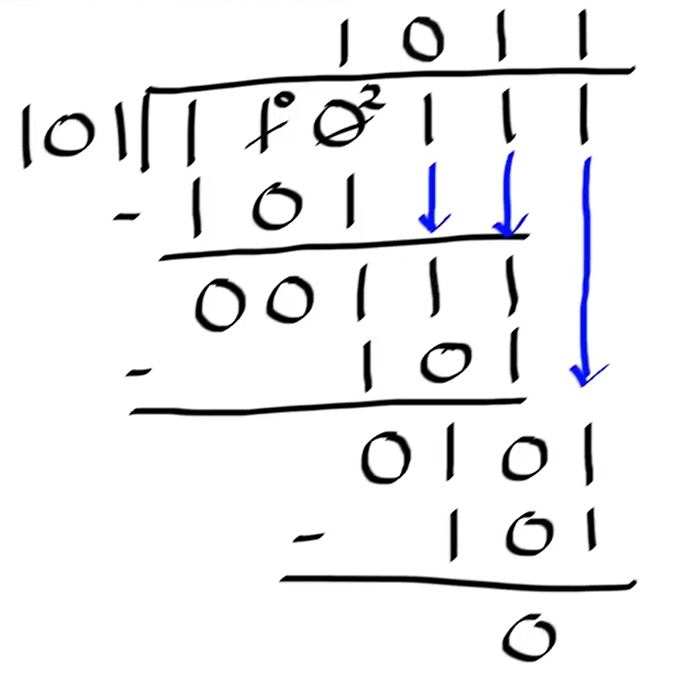 1 0 1 1
101 1 1̸⁰ 0̸² 1 1 1
- 1 0 1
0 0 1 1 1
- 1 0 1
0 1 0 1
- 1 0 1
0